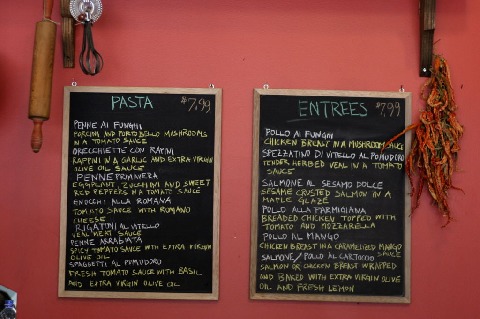 PASTA $7.99
PENNE AI FUNGHI
PORCINI AND PORTOBELLO MUSHROOMS
IN A TOMATO SAUCE
ORECCHIETTE CON RAPINI
RAPPINI IN A GARLIC AND EXTRA VIRGIN
OLIVE OIL SAUCE
PENNE PRIMAVERA
EGGPLANT, ZUCCHINI AND SWEET
RED PEPPERS IN A TOMATO SAUCE
GNOCCHI ALLA ROMANA
TOMATO SAUCE WITH ROMANO
CHEESE
RIGATONI AL VITELLO
VEAL MEAT SAUCE
PENNE ARRABIATA
SPICY TOMATO SAUCE WITH EXTRA VIRGIN
OLIVE OIL
SPAGETTI AL POMODORO
FRESH TOMATO SAUCE WITH BASIL
AND EXTRA VIRGIN OLIVE OIL
ENTREES $7.99
POLLO AI FUNGHI
CHICKEN BREAST IN A MUSHROOM SAUCE
SPEZZATINO DI VITELLO AL POMODORO
TENDER HERBED VEAL IN A TOMATO
SAUCE
SALMONE AL SESAMO DOLCE
SESAME CRUSTED SALMON IN A
MAPLE GLAZE
POLLO ALLA PARMIGIANA
BREADED CHICKEN TOPPED WITH
TOMATO AND MOZZARELLA
POLLO AL MANGO
CHICKEN BREAST IN A CARAMELIZED MANGO
SAUCE
SALMONE/ POLLO AL CARTOCCIO
SALMON OR CHICKEN BREAST WRAPPED
AND BAKED WITH EXTRA VIRGIN OLIVE
OIL AND FRESH LEMON